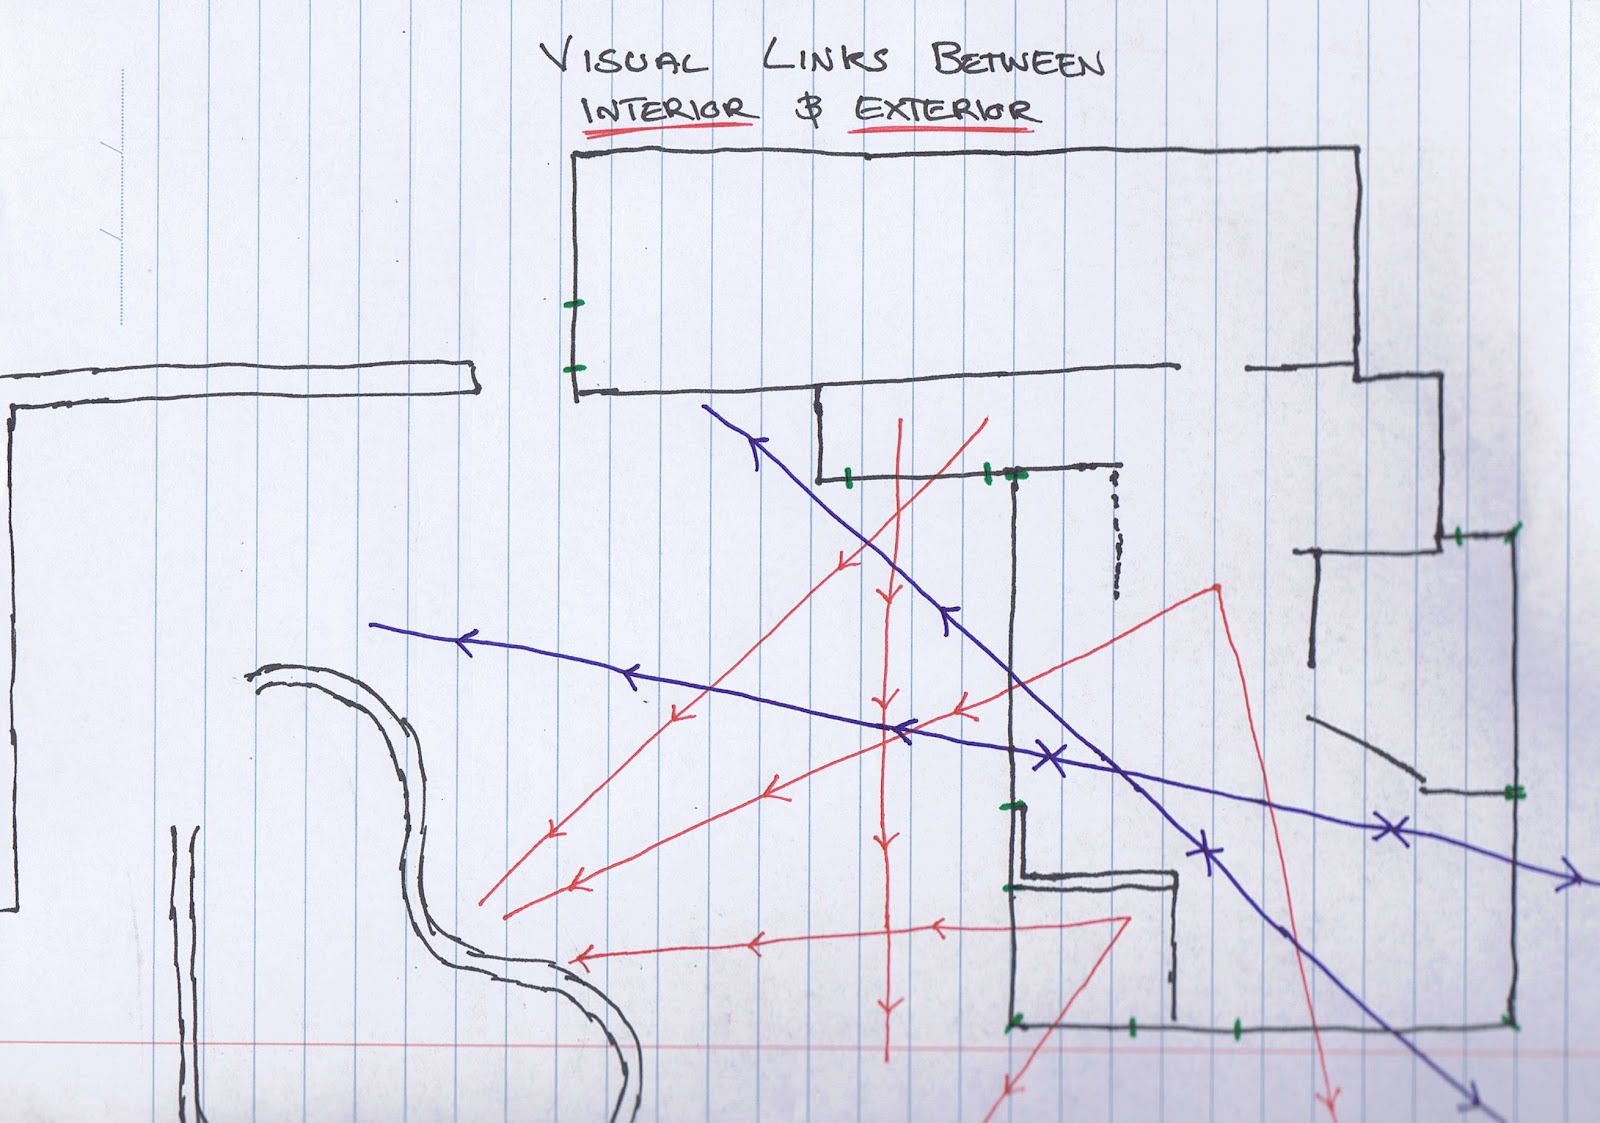 VISUAL LINKS BETWEEN
INTERIOR & EXTERIOR